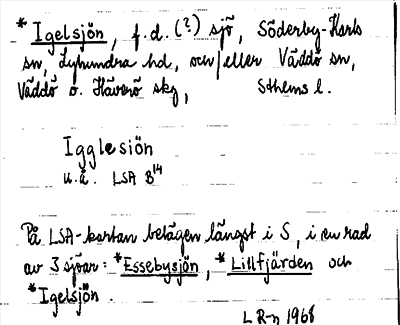 * Igelsjön, f.d. (?) sjö, Söderby-Karls
sn, Lyhundra hd, och/eller Väddö sn,
Väddö o. Häverö skg, Sthlms l.
Igglesiön
u.å. LSA B14
På LSA-kartan belägen längst i S, i en rad
av 3 sjöar: *Essebysjön, *Lillfjärden och
*Igelsjön.
LR-n 1968